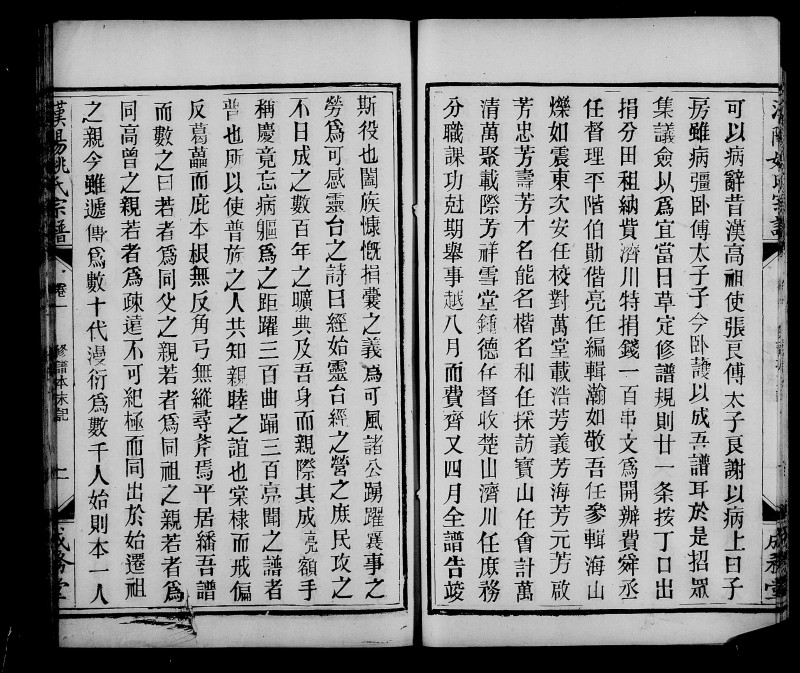 可以病辭昔漢高祖使張良傅太子良謝以病上曰子
房雖病彊卧傅太子子今卧護以成吾譜耳於是招眾
集議僉以為宜當日草定修譜規則廿一条按丁口出
捐分田租納費濟川特捐錢一百串文為開辦費舜丞
任督理平階伯勛偕亮任編輯瀚如敬吾任参輯海山
爍如震東次安任校對萬堂載浩芳義芳海芳元芳啟
芳忠芳壽芳才名能名楷名和任採訪寶山任會計萬
清萬聚載際芳祥雪堂鍾德任督收楚山濟川任庶務
分職課功尅期舉事越八月而費齊又四月全譜告竣
斯役也闔族慷慨捐囊之義為可風諸公踴躍襄事之
勞為可感靈台之詩曰經始靈台經之營之庶民攻之
不日成之數百年之曠典及吾身而親際其成亮額手
稱慶竟忘病軀為之距躍三百曲踊三百亮聞之譜者
普也所以使普族之人共知親睦之誼也棠棣而戒偏
反葛藟而庇本根無反角弓無縱尋斧焉平居繙吾譜
而數之曰若者為同父之親若者為同祖之親若者為
同高曾之親若者為疎遠不可紀極而同出於始遷祖
之親今雖遞傳為數十代漫衍為數千人始則本一人
漢陽姚氏宗譜
卷一
修譜本末記
二
成務堂